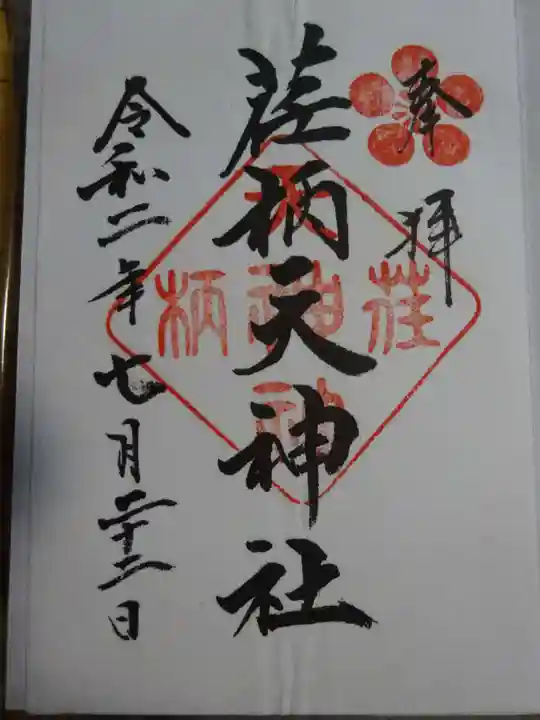 奉拝
荏柄天神社
荏柄天神社
令和二年七月二十二日